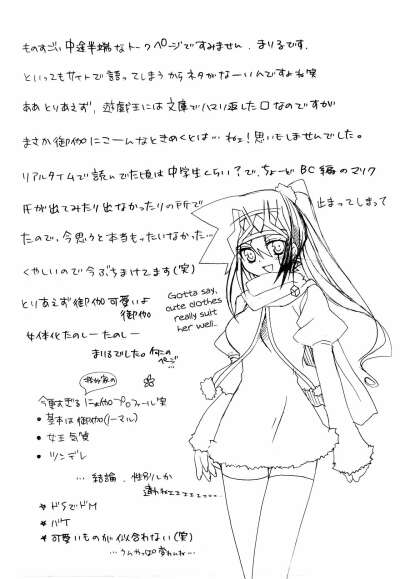 ものすごい中途半端なトークページですみません、まりるです。
といってもサイトで語ってしまうからネタがなーいんですよね笑
ああとりあえず、遊戯王には文庫でハマり返した口なのですが
まさか御伽にこーんなときめくとは…ねェ!思いもしませんでした。
リアルタイムで読んでた頃は中学生くらい?で、ちょーど BC編のマリク
が出てみたり出なかったりの所で 止まってしまって
たので、今思うと本当もったいなかった…
くやしいので今ぶちまけてます(笑)
とりあえず御伽可愛いよ
御伽
女体化たのしーたのしー
まりるでした。
ページ…
Gotta say,
cute clothes
really suit
her well..
今更すぎるにょ伽プロフィール笑
• 基本は御伽(ノーマル)
• 女王気質
• ツンデレ
…結論、性別しか
違わねェェェェ……
* ドSでドM
* バケ
* 可愛いものが似合わない(笑)
…うんやっぱ変わんね…